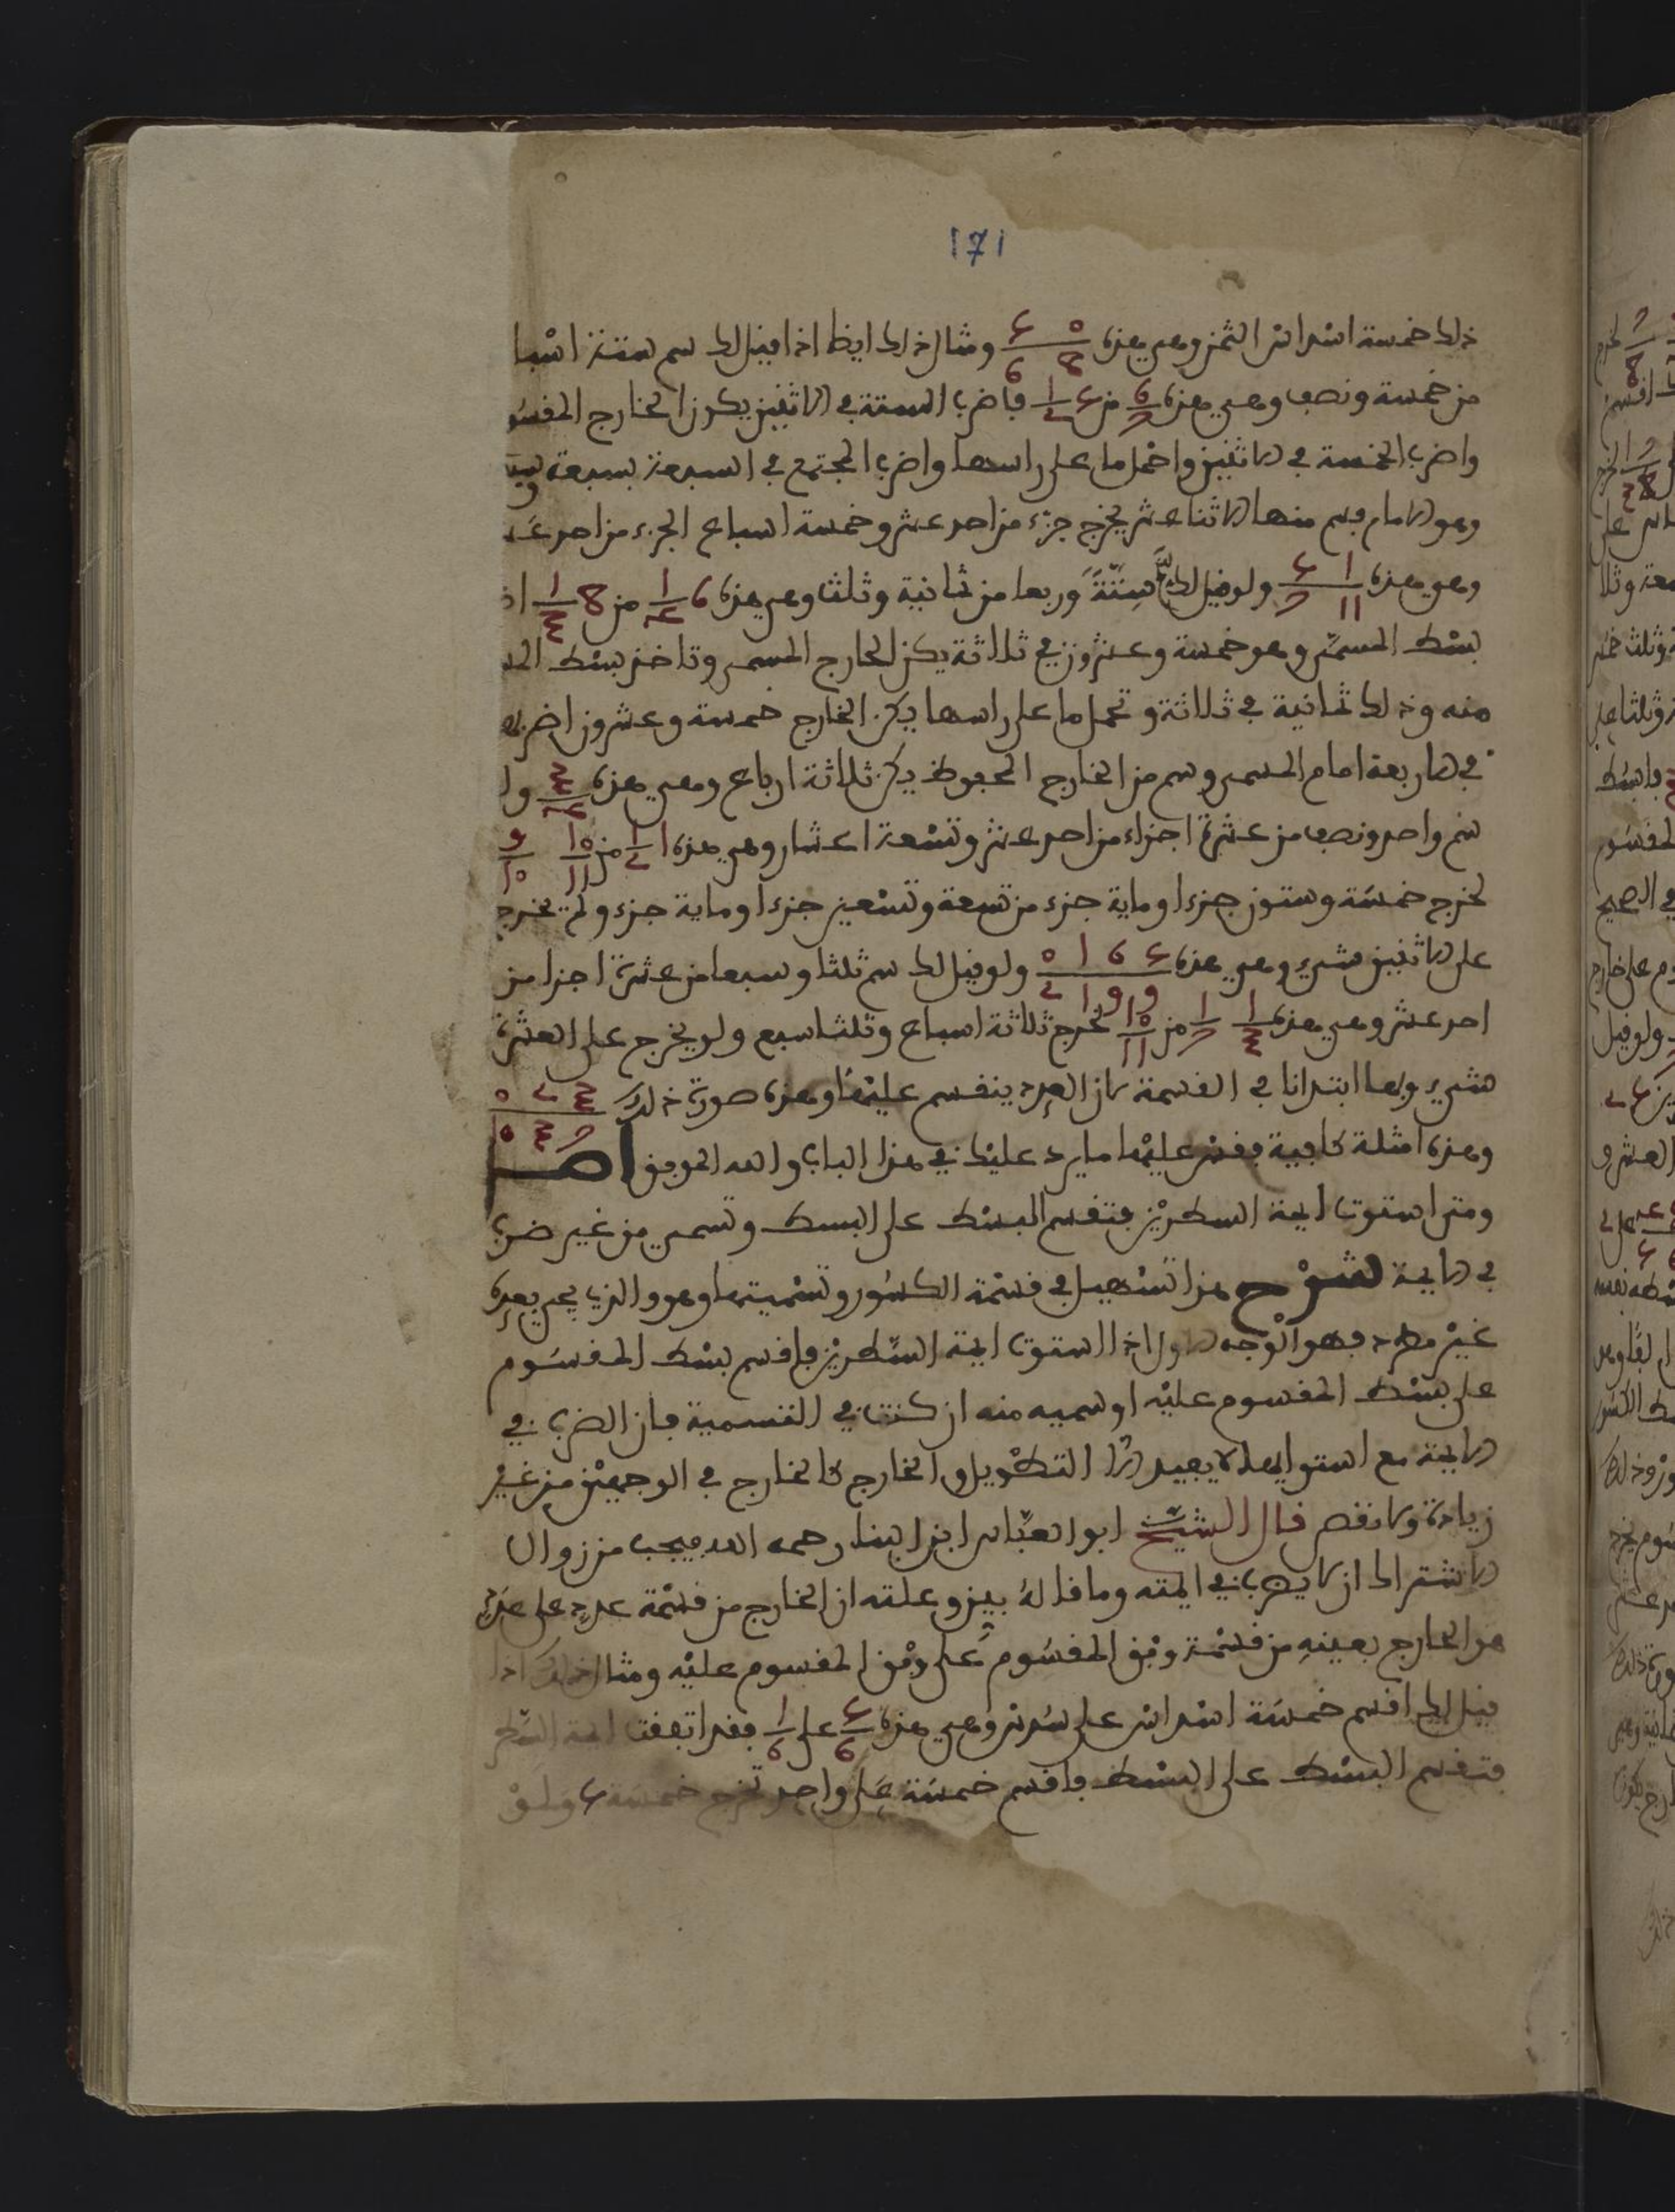 171
ذلك خمسة اسداس الثمن وهي هذه ٥ ع / 8 6 ومثال ذلك ايضا اذا قيل لك سم ستة اسبا
من خمسة ونصف وهي هذه 6/7 من ع 1/2 فاضرب الستة في الاثنين يكون الخارج المقسو
واضرب الخمسة في الاثنين واحمل ما على راسها واضرب المجتمع في السبعة بسبعة وسبـ
وهو الامام فسم منها الاثنا عشر يخرج جزء من احد عشر وخمسة اسباع الجزء من احد عـ
وهي هذه 1 ع / 11 7 ولو قيل لك سم ستة وربعا من ثمانية وثلث وهي هذه 6 1/4 من 8 1/3 اضـ
بسط المسمى وهو خمسة وعشرون في ثلاثة يكن الخارج المسمى وتاخذ بسط المـ
منه وذلك ثمانية في ثلاثة وتحمل ما على راسها يكن الخارج خمسة وعشرون اضربه
في الاربعة امام المسمى وسم من الخارج المحفوظ يكن ثلاثة ارباع وهي هذه 3/4 ولـ
سم واحد ونصف من عشرة اجزاء من احد عشر وتسعة اعشار وهي هذه 1 1/2 من 10/11 9/10
لخرج خمسة وستون جزءا وماية جزء من تسعة وتسعين جزءا وماية جزء ولم يخرج
على الاثنين شيء وهي هذه ع 6 1 0 / 9 9 1 2 ولو قيل لك سم ثلثا وسبعا من عشرة اجزا من
احد عشر وهي هذه 1/3 1/7 من 10/11 لخرج ثلاثة اسباع وثلثا سبع ولم يخرج على العشرة
شيء ولها ابتدانا في القسمة لان العدد ينقسم عليها وهذه صورة ذلك 3 2 0 / 7 3 10
وهذه امثلة كافية فقس عليها ما يرد عليك في هذا الباب والله الموفق اصل
ومتى استوت ايمة السطرين فتقسم البسط على البسط وتسمي من غير ضرب
في الايمة شرح هذا تسهيل في قسمة الكسور وتسميتها وهو والذي يجي بعده
غير مطرد فهو الوجه الاول اذا استوت ايمة السطرين فاقسم بسط المقسوم
على بسط المقسوم عليه او سميه منه ان كنت في التسمية فان الضرب في
الايمة مع استوايها لا يفيد الا التطويل والخارج كالخارج في الوجهين من غير
زيادة ولا نقص قال الشيخ ابو العباس ابن البنا رحمه الله فيجب من زوال
الاشتراك ان لا يضرب في ايمته وما قاله بين وعلته ان الخارج من قسمة عدد على عدد
هو الخارج بعينه من قسمة وفق المقسوم على وفق المقسوم عليه ومثال ذلك اذا
قيل لك اقسم خمسة اسداس على سدس وهي هذه ع/6 على 1/6 فقد اتفقت ايمة السطر
فتقسم البسط على البسط فاقسم خمسة على واحد تخرج خمسة ع ولو